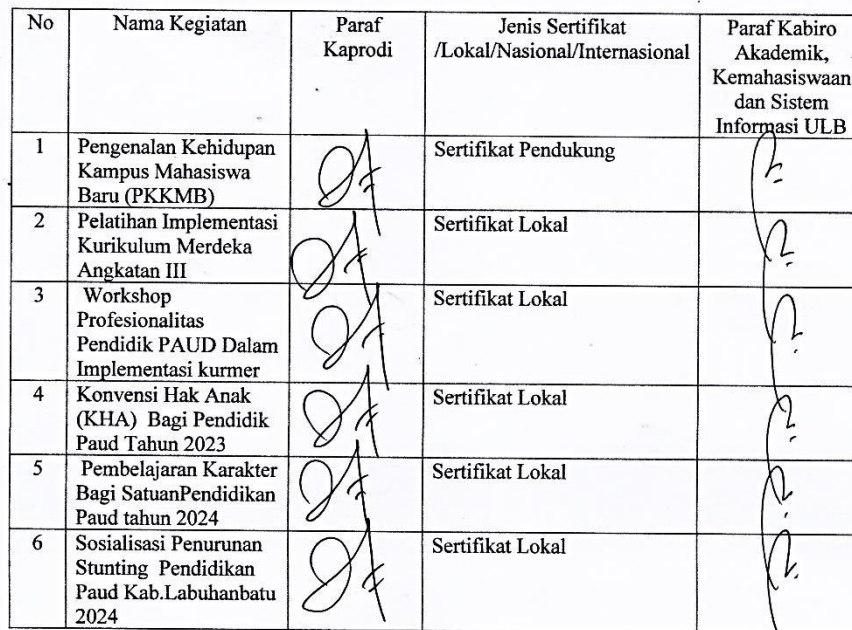 No
Nama Kegiatan
Paraf
Kaprodi
Jenis Sertifikat
/Lokal/Nasional/Internasional
Paraf Kabiro
Akademik,
Kemahasiswaan
dan Sistem
Informasi ULB
1
Pengenalan Kehidupan
Kampus Mahasiswa
Baru (PKKMB)
Sertifikat Pendukung
2
Pelatihan Implementasi
Kurikulum Merdeka
Angkatan III
Sertifikat Lokal
3
Workshop
Profesionalitas
Pendidik PAUD Dalam
Implementasi kurmer
Sertifikat Lokal
4
Konvensi Hak Anak
(KHA) Bagi Pendidik
Paud Tahun 2023
Sertifikat Lokal
5
Pembelajaran Karakter
Bagi SatuanPendidikan
Paud tahun 2024
Sertifikat Lokal
6
Sosialisasi Penurunan
Stunting Pendidikan
Paud Kab.Labuhanbatu
2024
Sertifikat Lokal